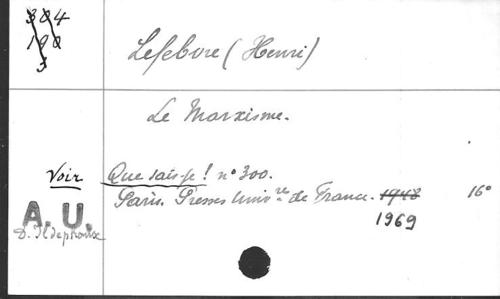 304
Lefebvre (Henri)
Le Marxisme.
Voir Que sais-je! n° 300.
Paris. Presses Univ.re de France. 1948 16°
1969
A. U.
D. Ildephonse